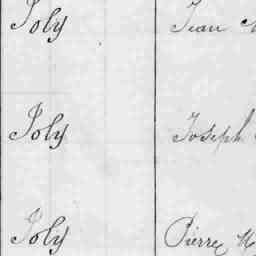 Joly Jean
Joly Joseph
Joly Pierre